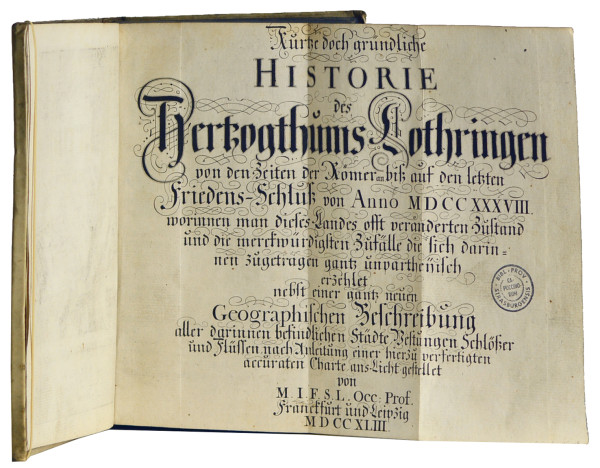 Kurtze doch gründliche
HISTORIE
des
Hertzogthums Lothringen
von den Zeiten der Römer an biß auf den letzten
Friedens-Schluß von Anno MDCCXXXVIII.
worinnen man dieses Landes offt veränderten Zustand
und die merckwürdigsten Zufälle die sich darin=
nen zugetragen gantz unpartheyisch
erzehlet
nebst einer gantz neuen
Geographischen Beschreibung
aller darinnen befindlichen Städte Vestungen Schlößer
und Flüssen nach Anleitung einer hierzu verfertigten
accuraten Charte ans Licht gestellet
von
M. I. F. S. L. Occ: Prof.
Franckfurt und Leipzig
MDCCXLIII.
BIBL. PROV.
STRASBURGENSIS